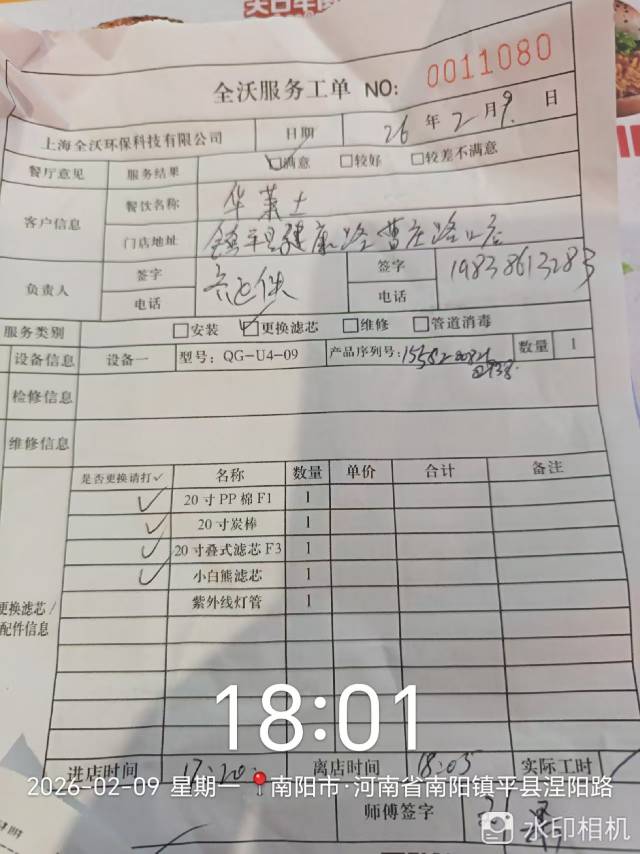 全沃服务工单 NO: 0011080
上海全沃环保科技有限公司 日期 26 年 2 月 9 日
餐厅意见 服务结果 ☑满意 □较好 □较差不满意
客户信息 餐饮名称 华莱士
门店地址 镇平县健康路曹庄路口店
负责人 签字 签字 19838613283
电话 电话
服务类别 □安装 ☑更换滤芯 □维修 □管道消毒
设备信息 设备一 型号: QG-U4-09 产品序列号: 数量 1
检修信息
维修信息
是否更换请打✓ 名称 数量 单价 合计 备注
✓ 20寸PP棉F1 1
✓ 20寸炭棒 1
✓ 20寸叠式滤芯F3 1
✓ 小白熊滤芯 1
紫外线灯管 1
更换滤芯/
配件信息
18:01
进店时间 17:20 离店时间 18:05 实际工时
2026-02-09 星期一 南阳市·河南省南阳镇平县涅阳路
师傅签字
水印相机